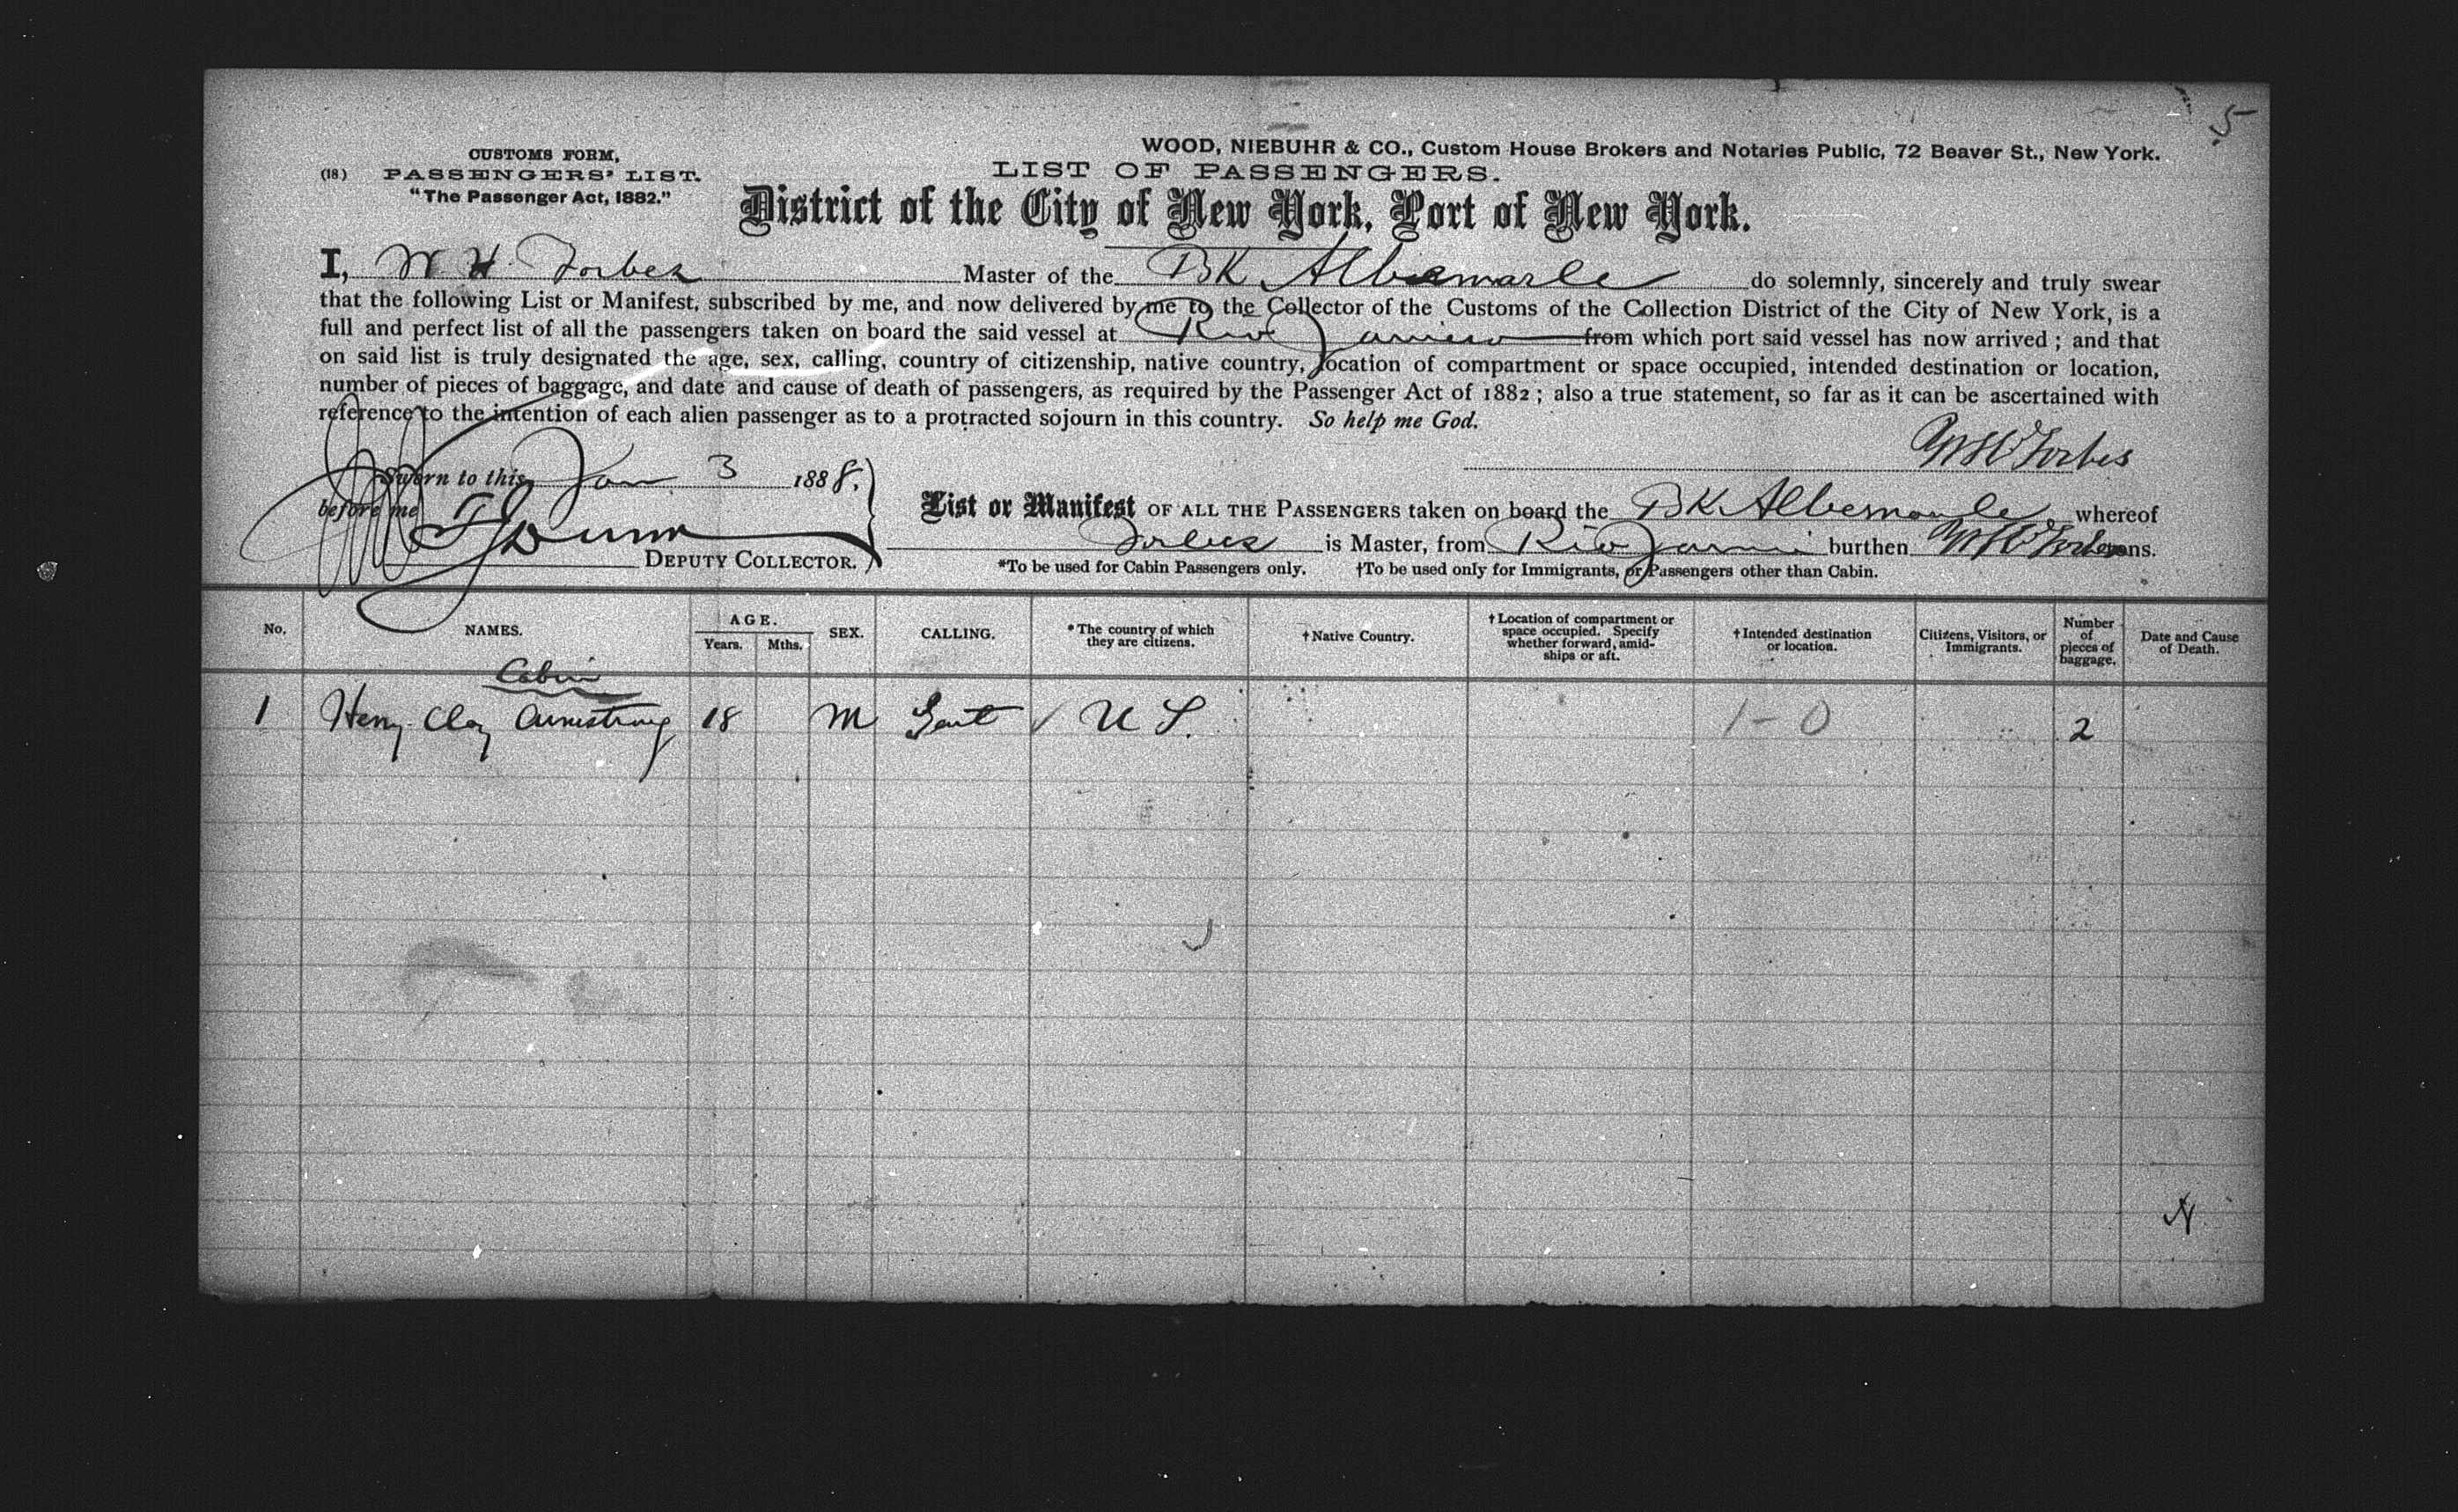 5
WOOD, NIEBUHR & CO., Custom House Brokers and Notaries Public, 72 Beaver St., New York.
CUSTOMS FORM,
(18) PASSENGERS' LIST.
"The Passenger Act, 1882."
LIST OF PASSENGERS.
District of the City of New York, Port of New York.
I, W H Forbes Master of the BK Albemarle do solemnly, sincerely and truly swear
that the following List or Manifest, subscribed by me, and now delivered by me to the Collector of the Customs of the Collection District of the City of New York, is a
full and perfect list of all the passengers taken on board the said vessel at Rio Janeiro from which port said vessel has now arrived ; and that
on said list is truly designated the age, sex, calling, country of citizenship, native country, location of compartment or space occupied, intended destination or location,
number of pieces of baggage, and date and cause of death of passengers, as required by the Passenger Act of 1882 ; also a true statement, so far as it can be ascertained with
reference to the intention of each alien passenger as to a protracted sojourn in this country. So help me God.
W H Forbes
Sworn to this Jan 3 1888.
before me
Dunn
DEPUTY COLLECTOR.
List or Manifest OF ALL THE PASSENGERS taken on board the BK Albemarle whereof
Forbes is Master, from Rio Janei burthen W H Forbes tons.
*To be used for Cabin Passengers only. †To be used only for Immigrants, or Passengers other than Cabin.
No. NAMES. AGE. Years. Mths. SEX. CALLING. *The country of which they are citizens. †Native Country. †Location of compartment or space occupied. Specify whether forward, amidships or aft. †Intended destination or location. Citizens, Visitors, or Immigrants. Number of pieces of baggage. Date and Cause of Death.
Cabin
1 Henry Clay Armstrong 18 M Gent ✓ U S. 1-0 2
N